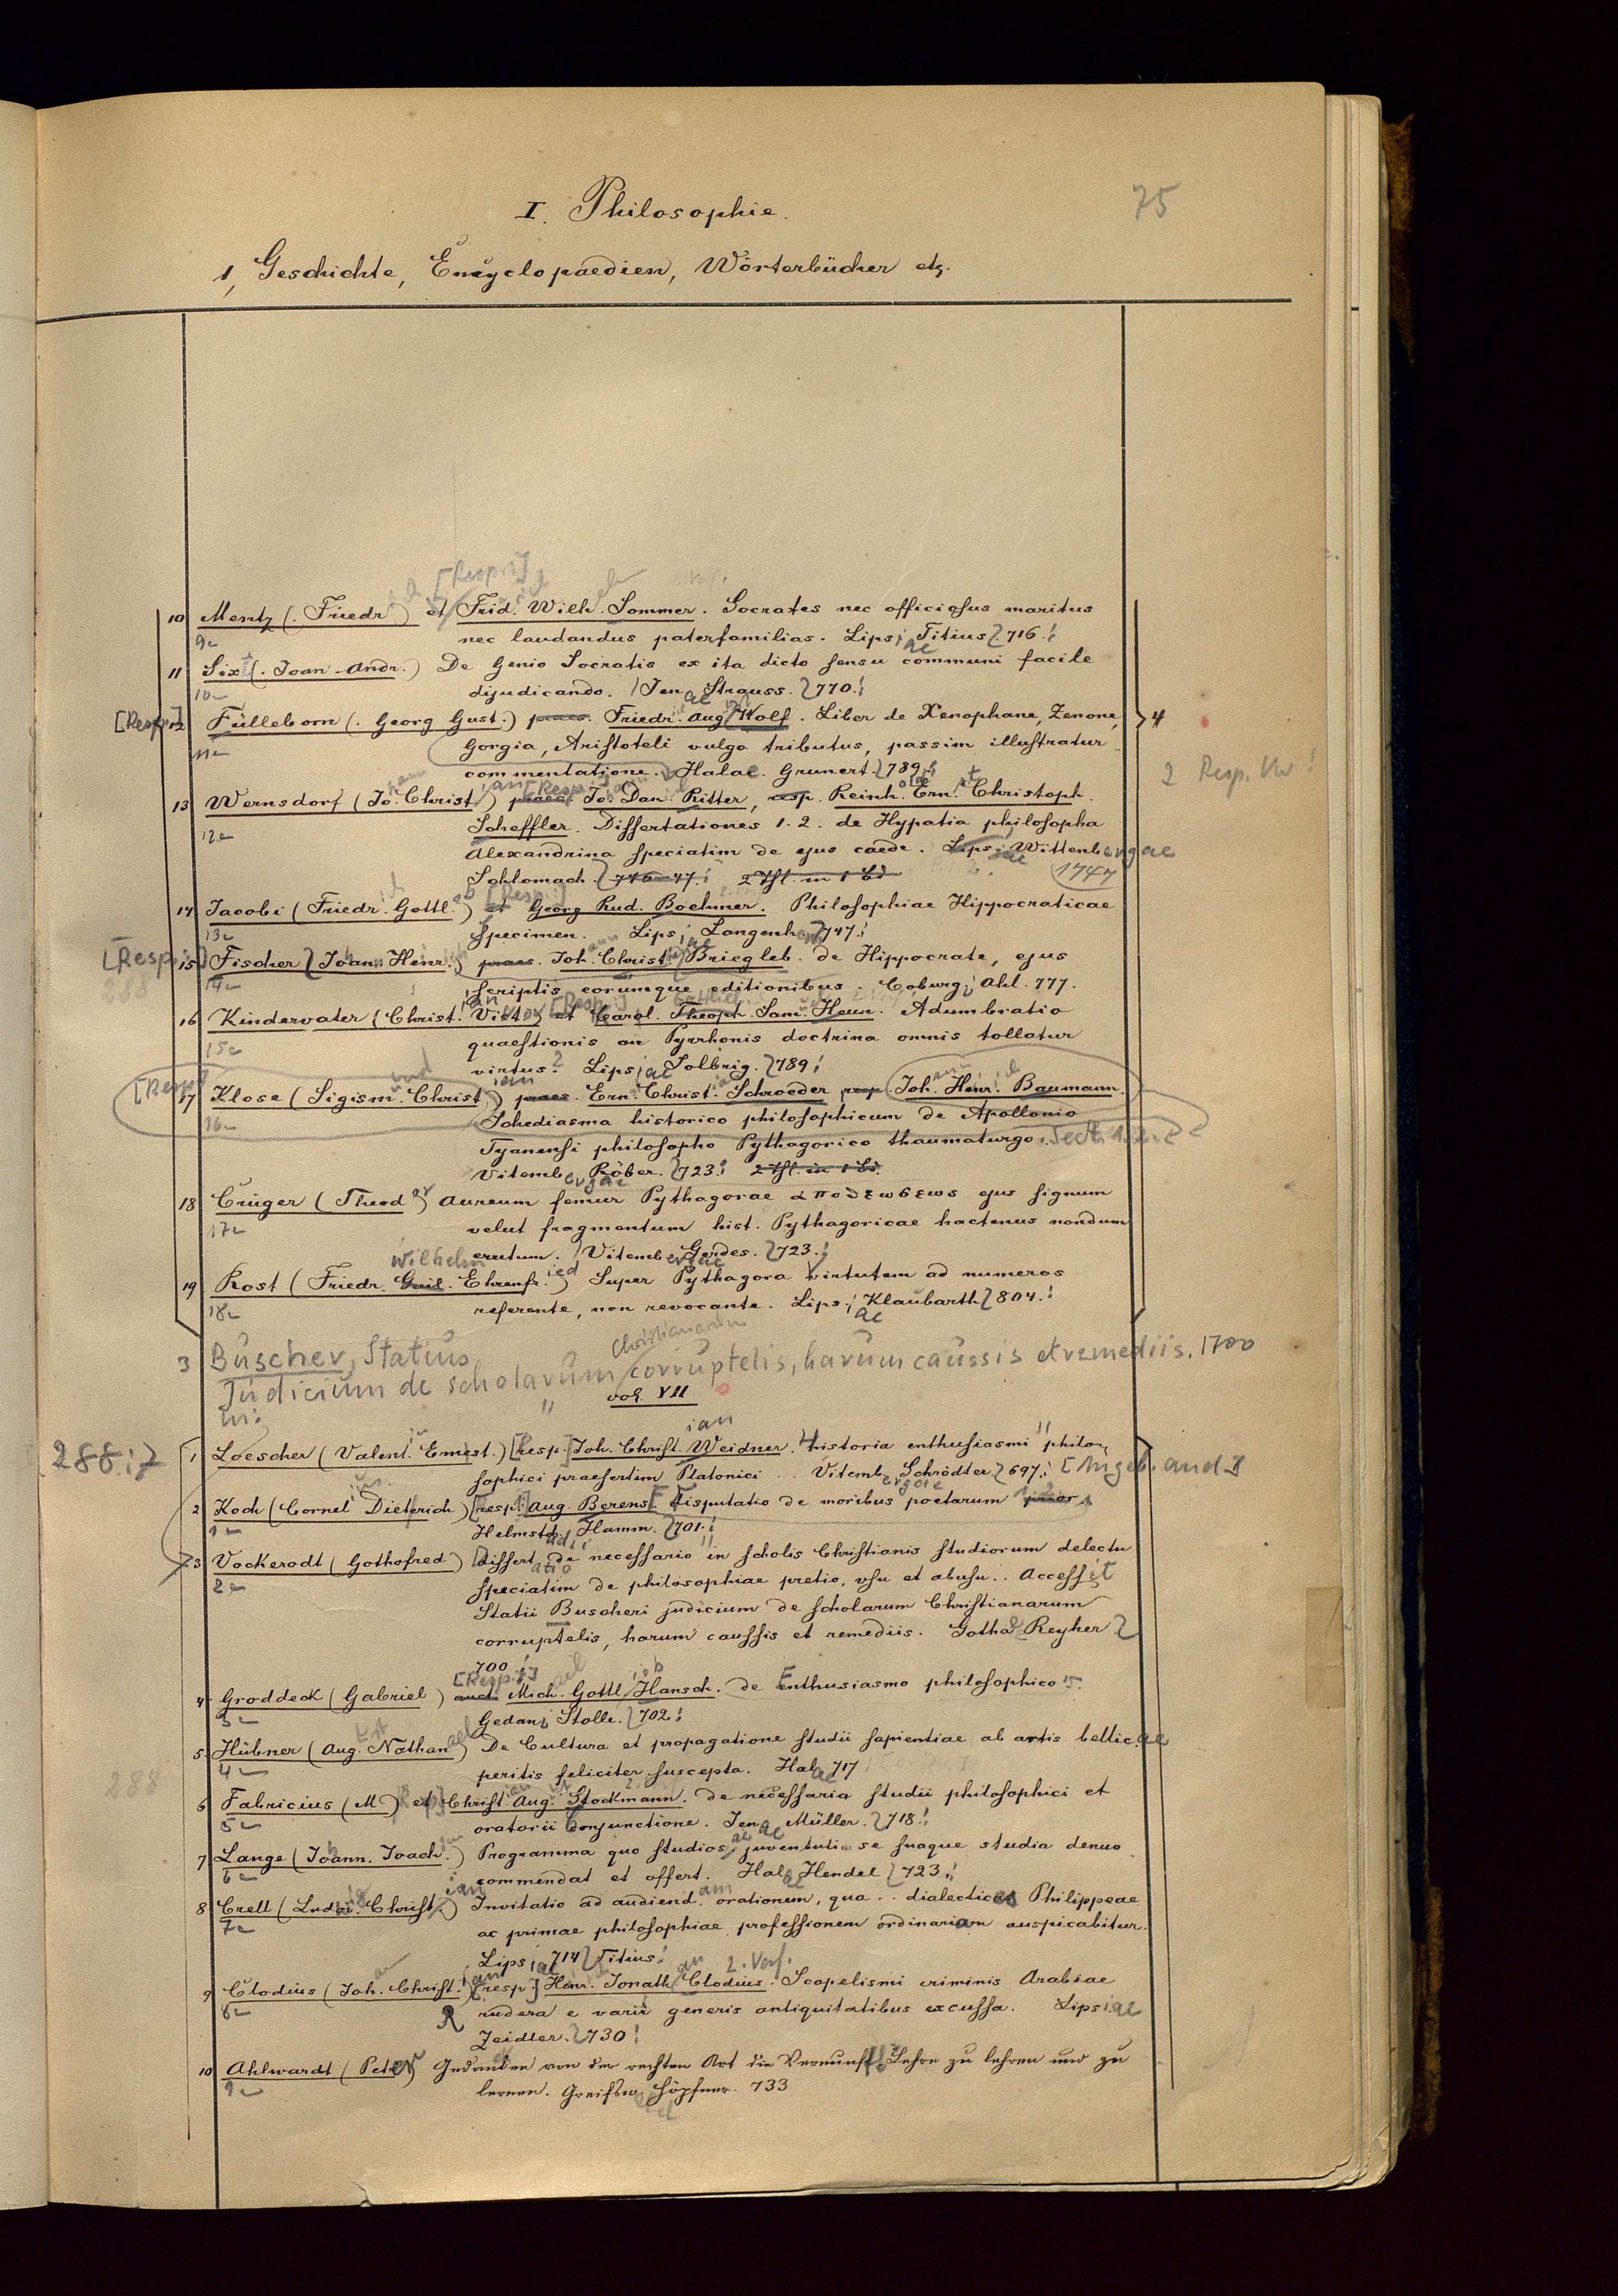 75
I. Philosophie.
1, Geschichte, Encyclopaedien, Wörterbücher etz.
[Resp.]
10 Mentz (Friedr) et Frid. Wilh. Sommer. Socrates nec officiosus maritus
9 nec laudandus paterfamilias. Lipsiae Titius 716.
11 Sixt (Joan. Andr.) De Genio Socratis ex ita dicto sensu communi facile
10 dijudicando. Jenae Strauss. 770.
[Resp.] 12 Fülleborn (Georg Gust.) praes. Friedr. Aug. Wolf. Liber de Xenophane, Zenone, 4
11 Gorgia, Aristoteli vulgo tributus, passim illustratur
commentatione. Halae. Grunert. 789.
2 Resp. Vw!
13 Wernsdorf (Johann Christian) praes. [Resp.] Jo. Dan. Ritter, resp. Reinh. Ern. Christoph.
12 Scheffler. Dissertationes 1.2. de Hypatia philosopha
Alexandrina speciatim de ejus caede. Lips. Wittenbergae
Schlomach. 746-47. 2 Thl. in 1 Bd 1747
14 Jacobi (Friedrich Gottlob) et [Resp.] Georg Rud. Boehmer. Philosophiae Hippocraticae
13 specimen. Lipsiae Langenh. 747.
[Resp.] 15 Fischer (Johann Henr.) praes. Joh. Christ. Briegleb. de Hippocrate, ejus
288 14 scriptis eorumque editionibus. Coburgi Ahl. 777.
16 Kindervater (Christian Victor) et [Resp.] Carol. Theoph. Sam. Heun. Adumbratio
15 quaestionis an Pyrrhonis doctrina omnis tollatur
virtus? Lipsiae Solbrig. 789.
[Resp.] 17 Klose (Sigismund Christian) praes. Ern. Christ. Schroeder resp. Joh. Heinr. Baumann.
16 Schediasma historico philosophicum de Apollonio
Tyanensi philosopho Pythagorico thaumaturgo. Sect. 1.2.
Vitembergae Röber. 723. 2 Thl. in 1 Bd.
18 Crüger (Theodor) Aureum femur Pythagorae αποθεωσεως ejus signum
17 velut fragmentum hist. Pythagoricae hactenus nondum
erutum. Vitembergae Gerdes. 723.
19 Rost (Friedr. Guil. Wilhelm Ehrenfried) Super Pythagora virtutem ad numeros
18 referente, non revocante. Lipsiae Klaubarth 804.
3 Büscher, Statius
Judicium de scholarum Christianarum corruptelis, harum caussis et remediis. 1700
in:
vol. VII
288:7 1 Loescher (Valent. Ernest.) [resp.] Joh. Christian Weidner. historia enthusiasmi philo-
sophici praesertim Platonici .. Vitembergae Schrödter 697. [Angeb. and.]
2 Koch (Cornel Dieterich) [resp.] Aug. Berens. Disputatio de moribus poetarum prior
1 Helmstadii Hamm. 701.
3 Vockerodt (Gothofred) Dissertatio de necessario in scholis Christianis studiorum delectu
2 speciatim de philosophiae pretio, usu et abusu .. Accessit
Statii Buscheri judicium de scholarum Christianarum
corruptelis, harum caussis et remediis. Gothae Reyher
700
4 Groddeck (Gabriel) auct. [Resp.] Michael Gottlieb Hansch. de Enthusiasmo philosophico
3 Gedani Stolle. 702.
5 Hübner (Aug. Nathanael) De Cultura et propagatione studii sapientiae ab artis bellicae
4 peritis feliciter suscepta. Halae 717
288
6 Fabricius (M.) et Christian Aug. Stockmann. de necessaria studii philosophici et
5 oratorii conjunctione. Jenae Müller. 718.
7 Lange (Johann. Joach.) Programma quo studiosae juventuti se suaque studia denuo
6 commendat et offert. Halae Hendel 723.
8 Crell (Ludwig Christian) Invitatio ad audiendam orationem, qua .. dialecticae Philippeae
7 ac primae philosophiae professionem ordinariam auspicabitur.
Lipsiae 714 Titius.
9 Clodius (Joh. Christian) [resp.] Henr. Jonathan Clodius. 2. Verf. Scopelismi criminis Arabiae
8 R rudera e varii generis antiquitatibus excussa. Lipsiae
Zeidler. 730
10 Ahlwardt (Peter) Gedancken von der rechten Art die Vernunft-Lehre zu lehren und zu
9 lernen. Greifsw. Höpfner. 733